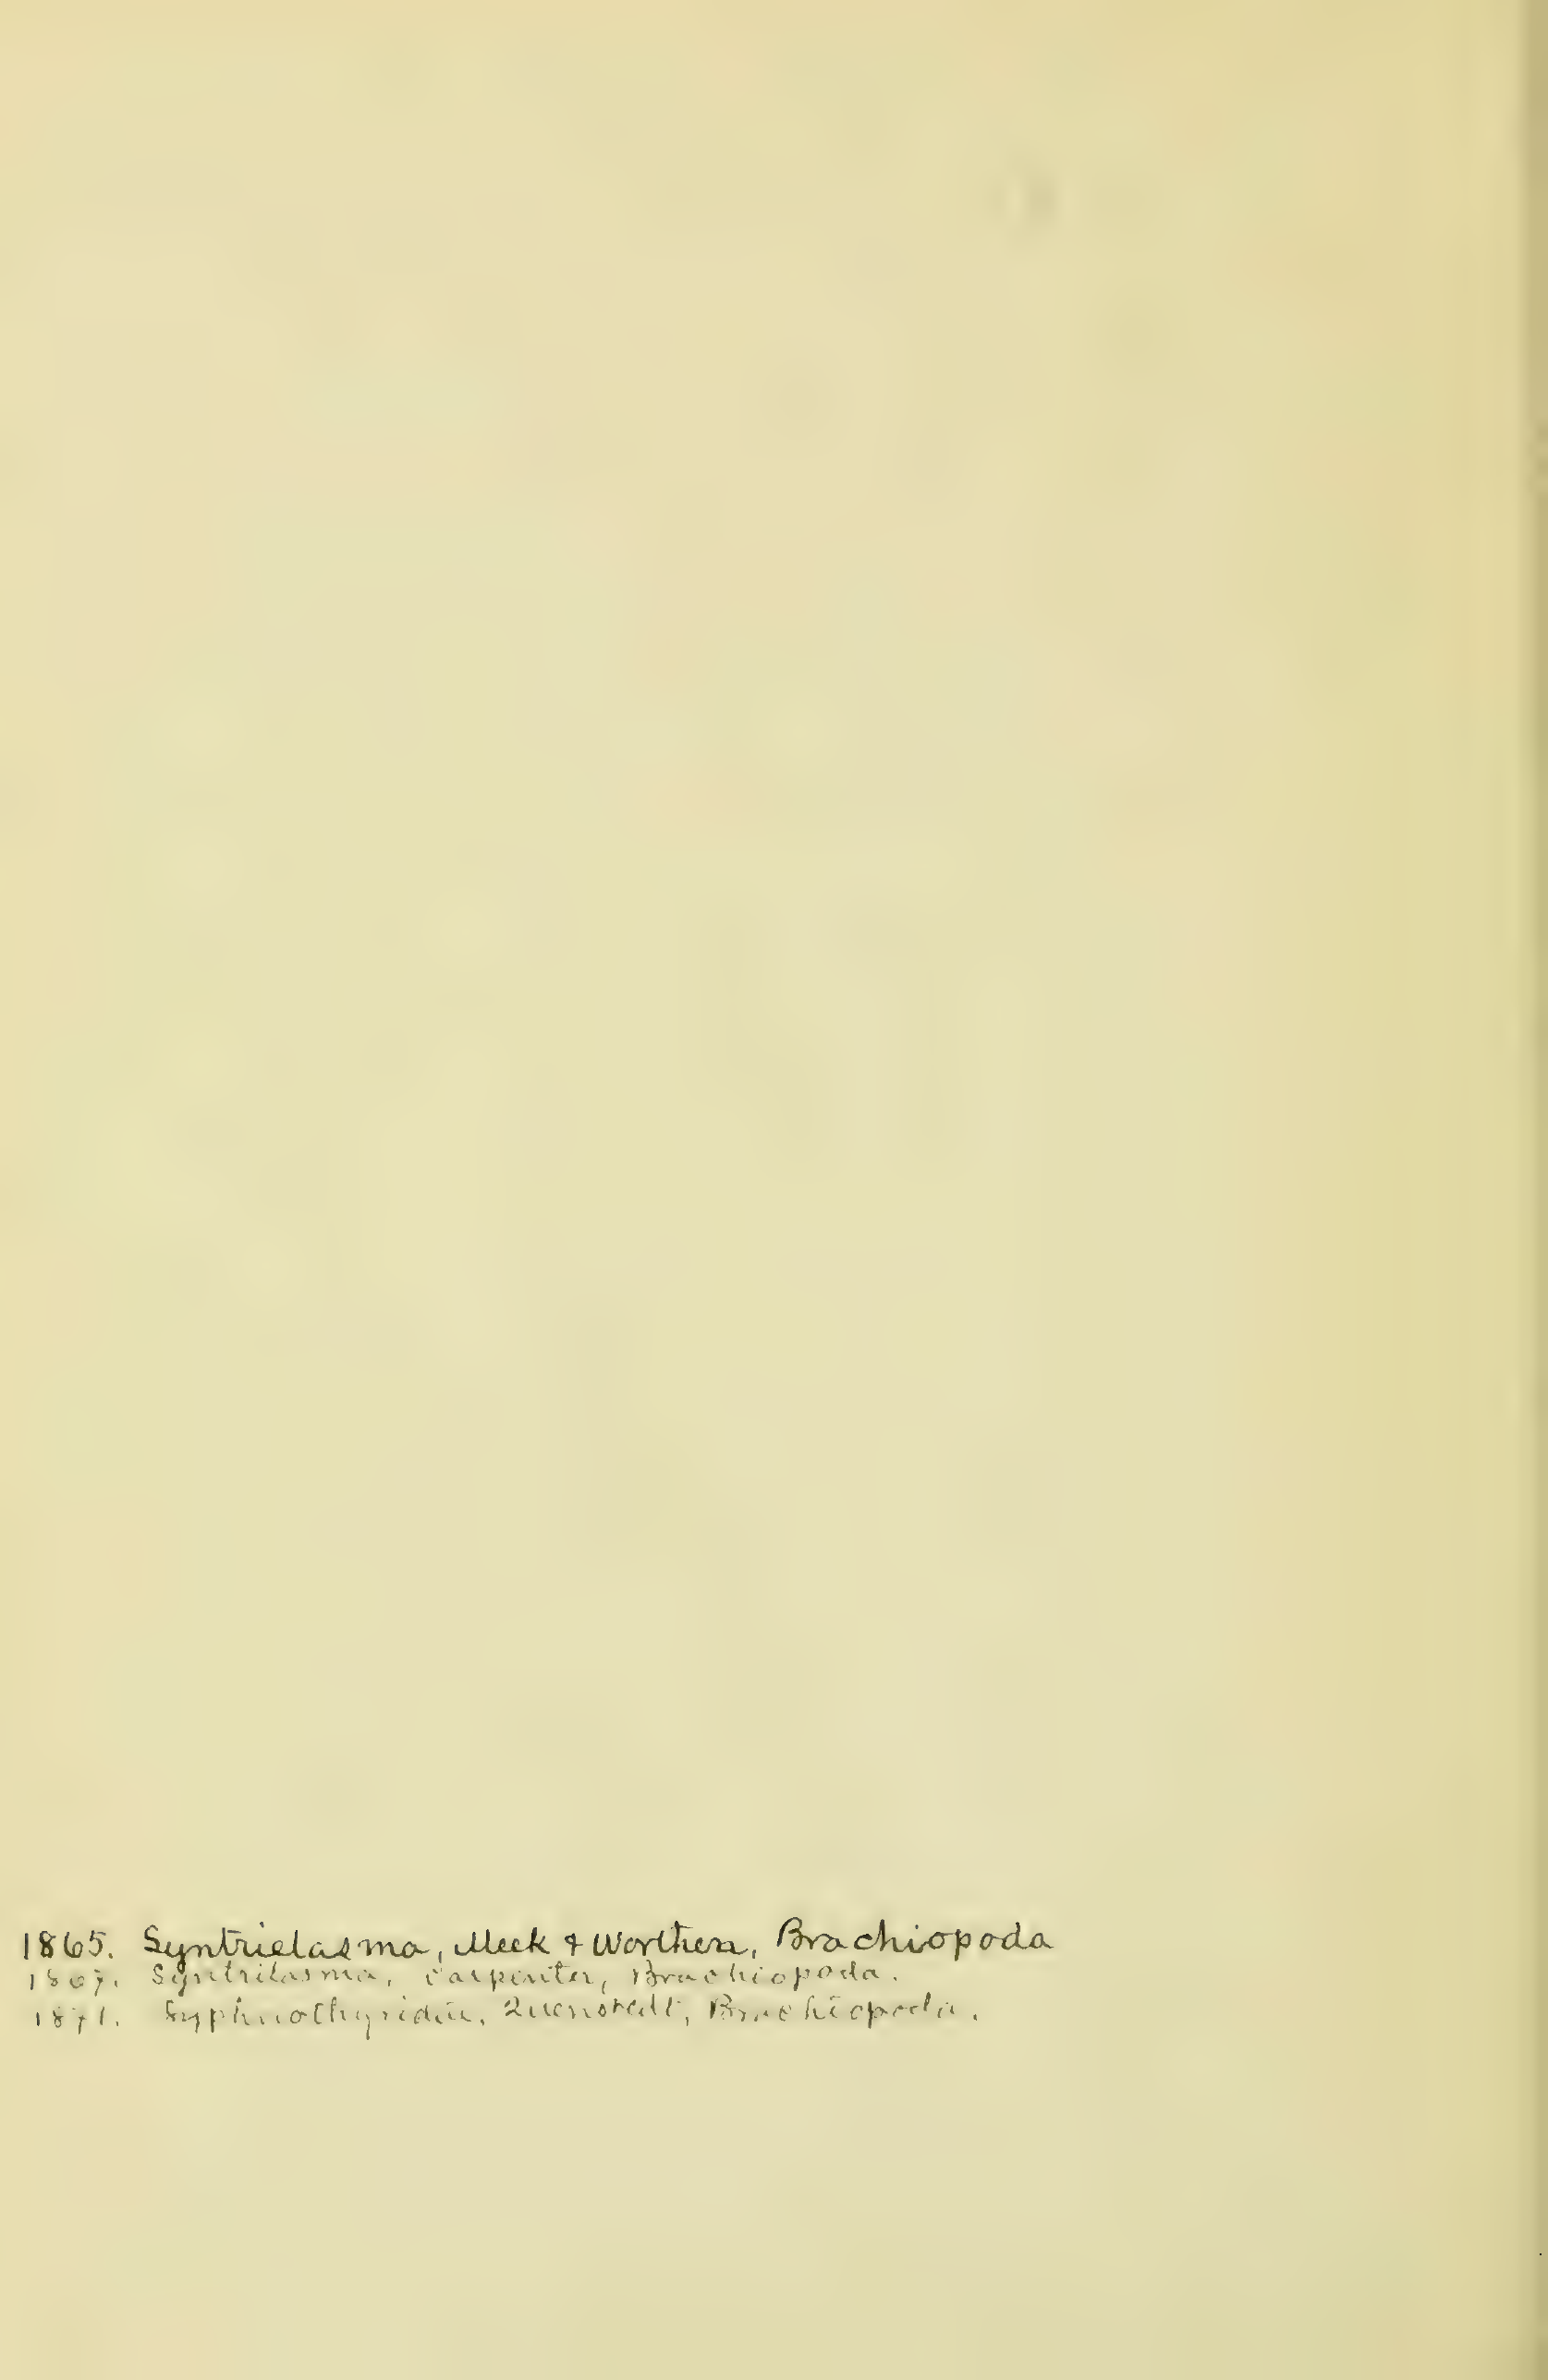 1865. Syntrielasma, Meek & Worthen, Brachiopoda
1867. Syntrilasma, Carpenter, Brachiopoda.
1871. Syphnothyridae, Quenstedt, Brachiopoda.